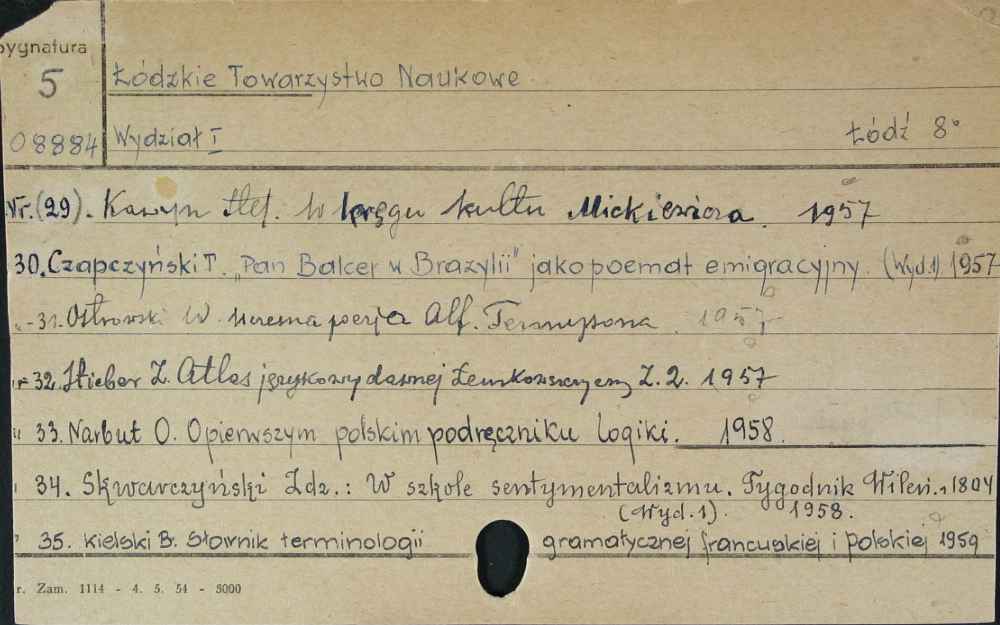 Sygnatura
5
08884
Łódzkie Towarzystwo Naukowe
Wydział I Łódź 8°
Nr. (29). Kawyn Stef. W kręgu kultu Mickiewicza. 1957
30. Czapczyński T. "Pan Balcer w Brazylii" jako poemat emigracyjny. (Wyd.1) 1957
"-31. Ostrowski W. Wczesna poezja Alf. Tennysona. 1957
32. Stieber Z. Atlas językowy dawnej Łemkowszczyzny Z. 2. 1957
" 33. Narbut O. O pierwszym polskim podręczniku logiki. 1958.
34. Skwarczyński Zdz.: W szkole sentymentalizmu. Tygodnik Wileń. 1804
(Wyd.1). 1958.
35. Kielski B. Słownik terminologii gramatycznej francuskiej i polskiej 1959
r. Zam. 1114 - 4. 5. 54 - 5000